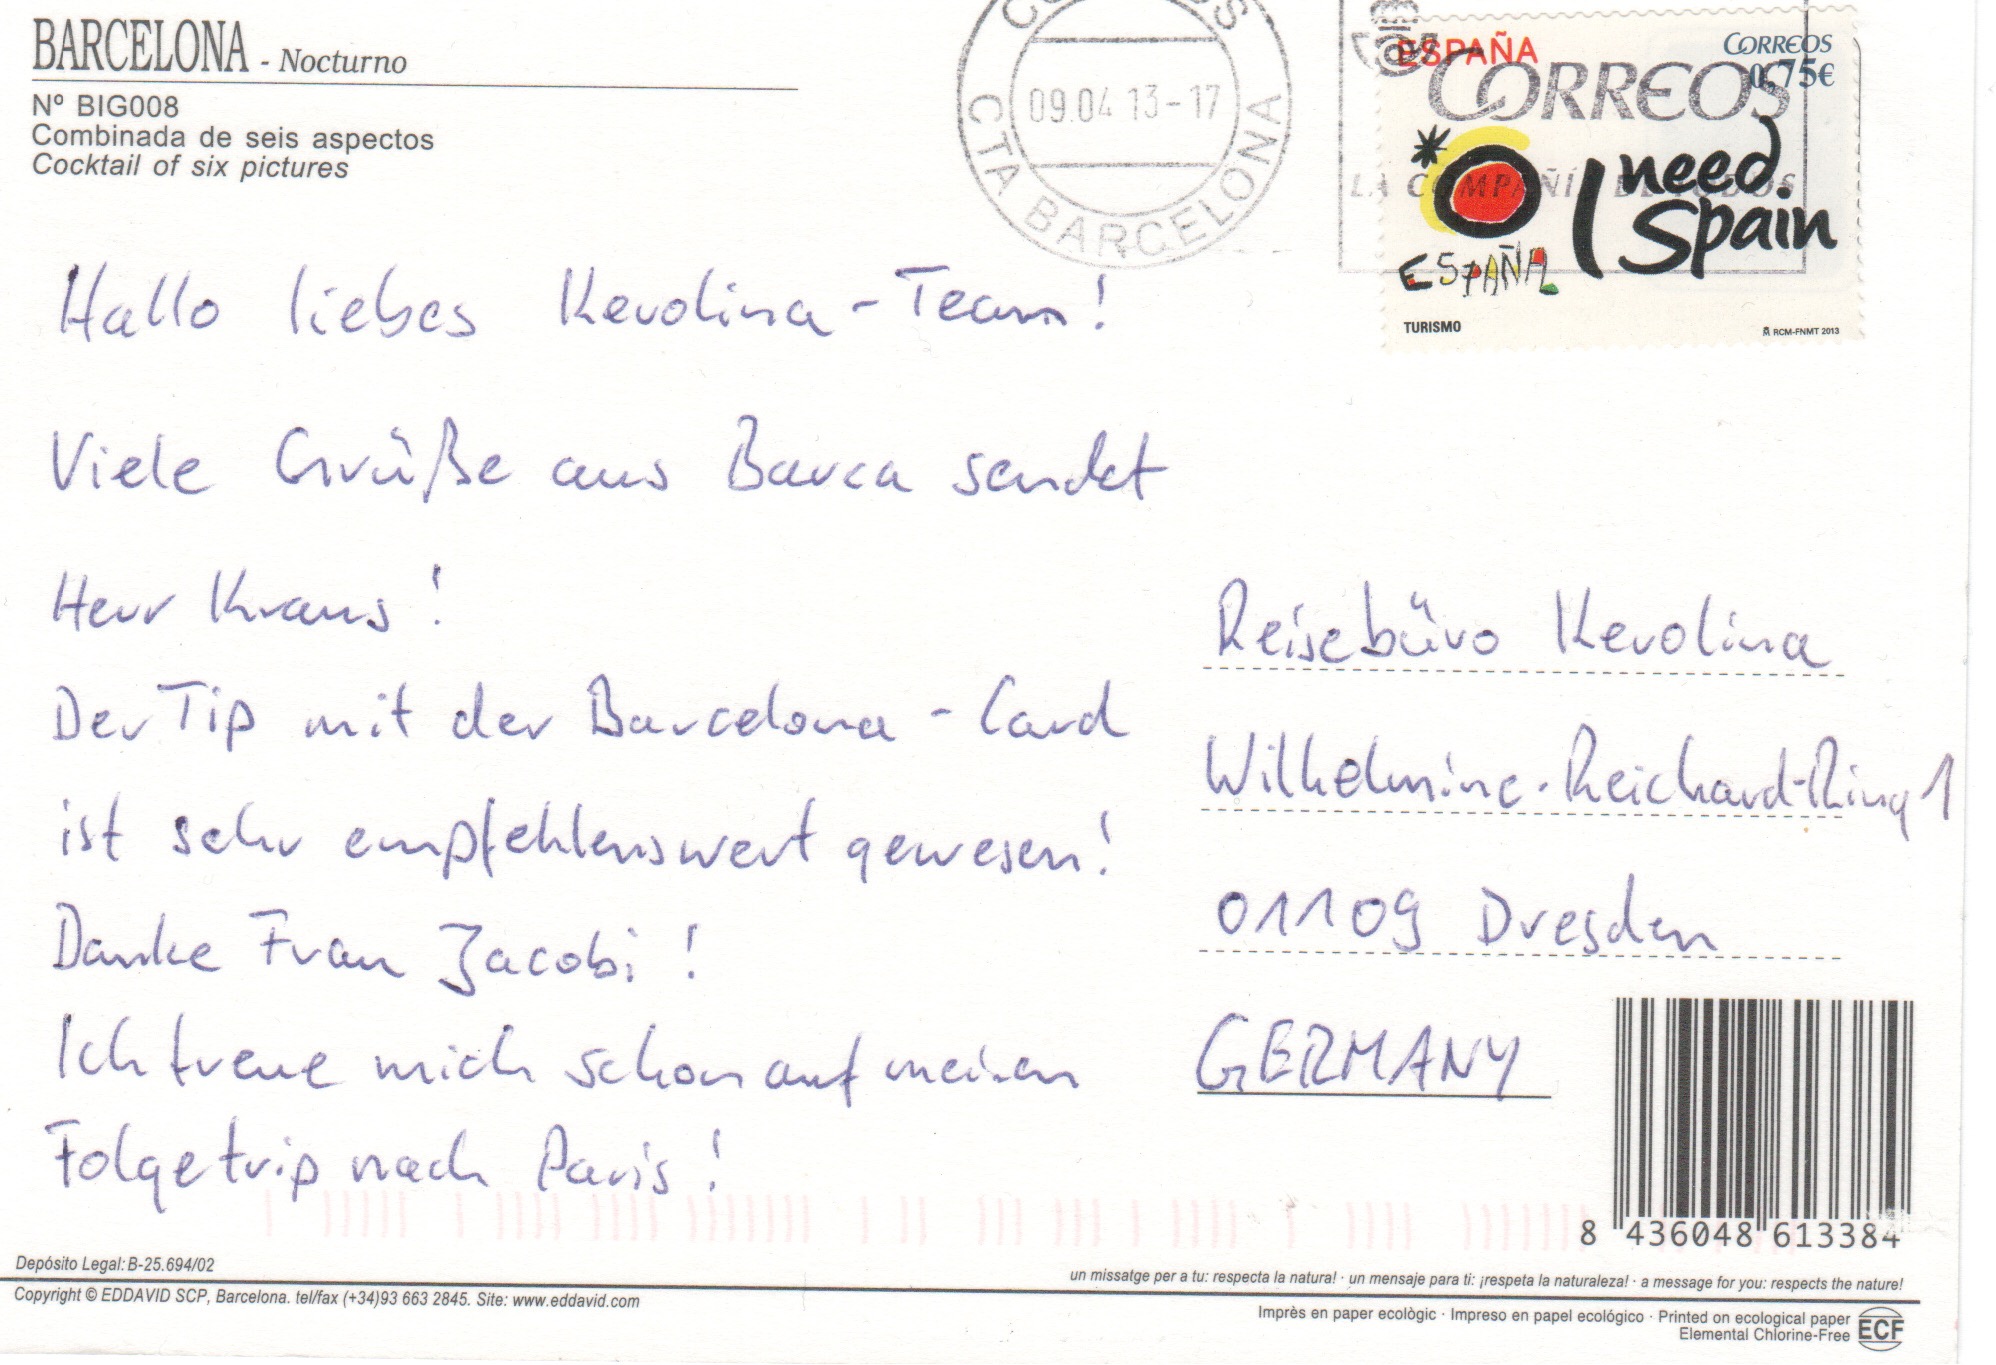 BARCELONA - Nocturno
Nº BIG008
Combinada de seis aspectos
Cocktail of six pictures
CORREOS
09.04 13-17
CTA BARCELONA
ESPAÑA
CORREOS
0,75€
CORREOS
LA COMPAÑÍA DE TODOS
I need Spain
ESPAÑA
TURISMO
RCM-FNMT 2013
Hallo liebes Kerolina-Team!
Viele Grüße aus Barca sendet
Herr Kraus!
Der Tip mit der Barcelona-Card
ist sehr empfehlenswert gewesen!
Danke Frau Jacobi!
Ich freue mich schon auf meinen
Folgetrip nach Paris!
Reisebüro Kerolina
Wilhelmine-Reichard-Ring 1
01109 Dresden
GERMANY
8 436048 613384
Depósito Legal: B-25.694/02
un missatge per a tu: respecta la natura! · un mensaje para ti: ¡respeta la naturaleza! · a message for you: respects the nature!
Copyright © EDDAVID SCP, Barcelona. tel/fax (+34)93 663 2845. Site: www.eddavid.com
Imprès en paper ecològic · Impreso en papel ecológico · Printed on ecological paper
Elemental Chlorine-Free
ECF